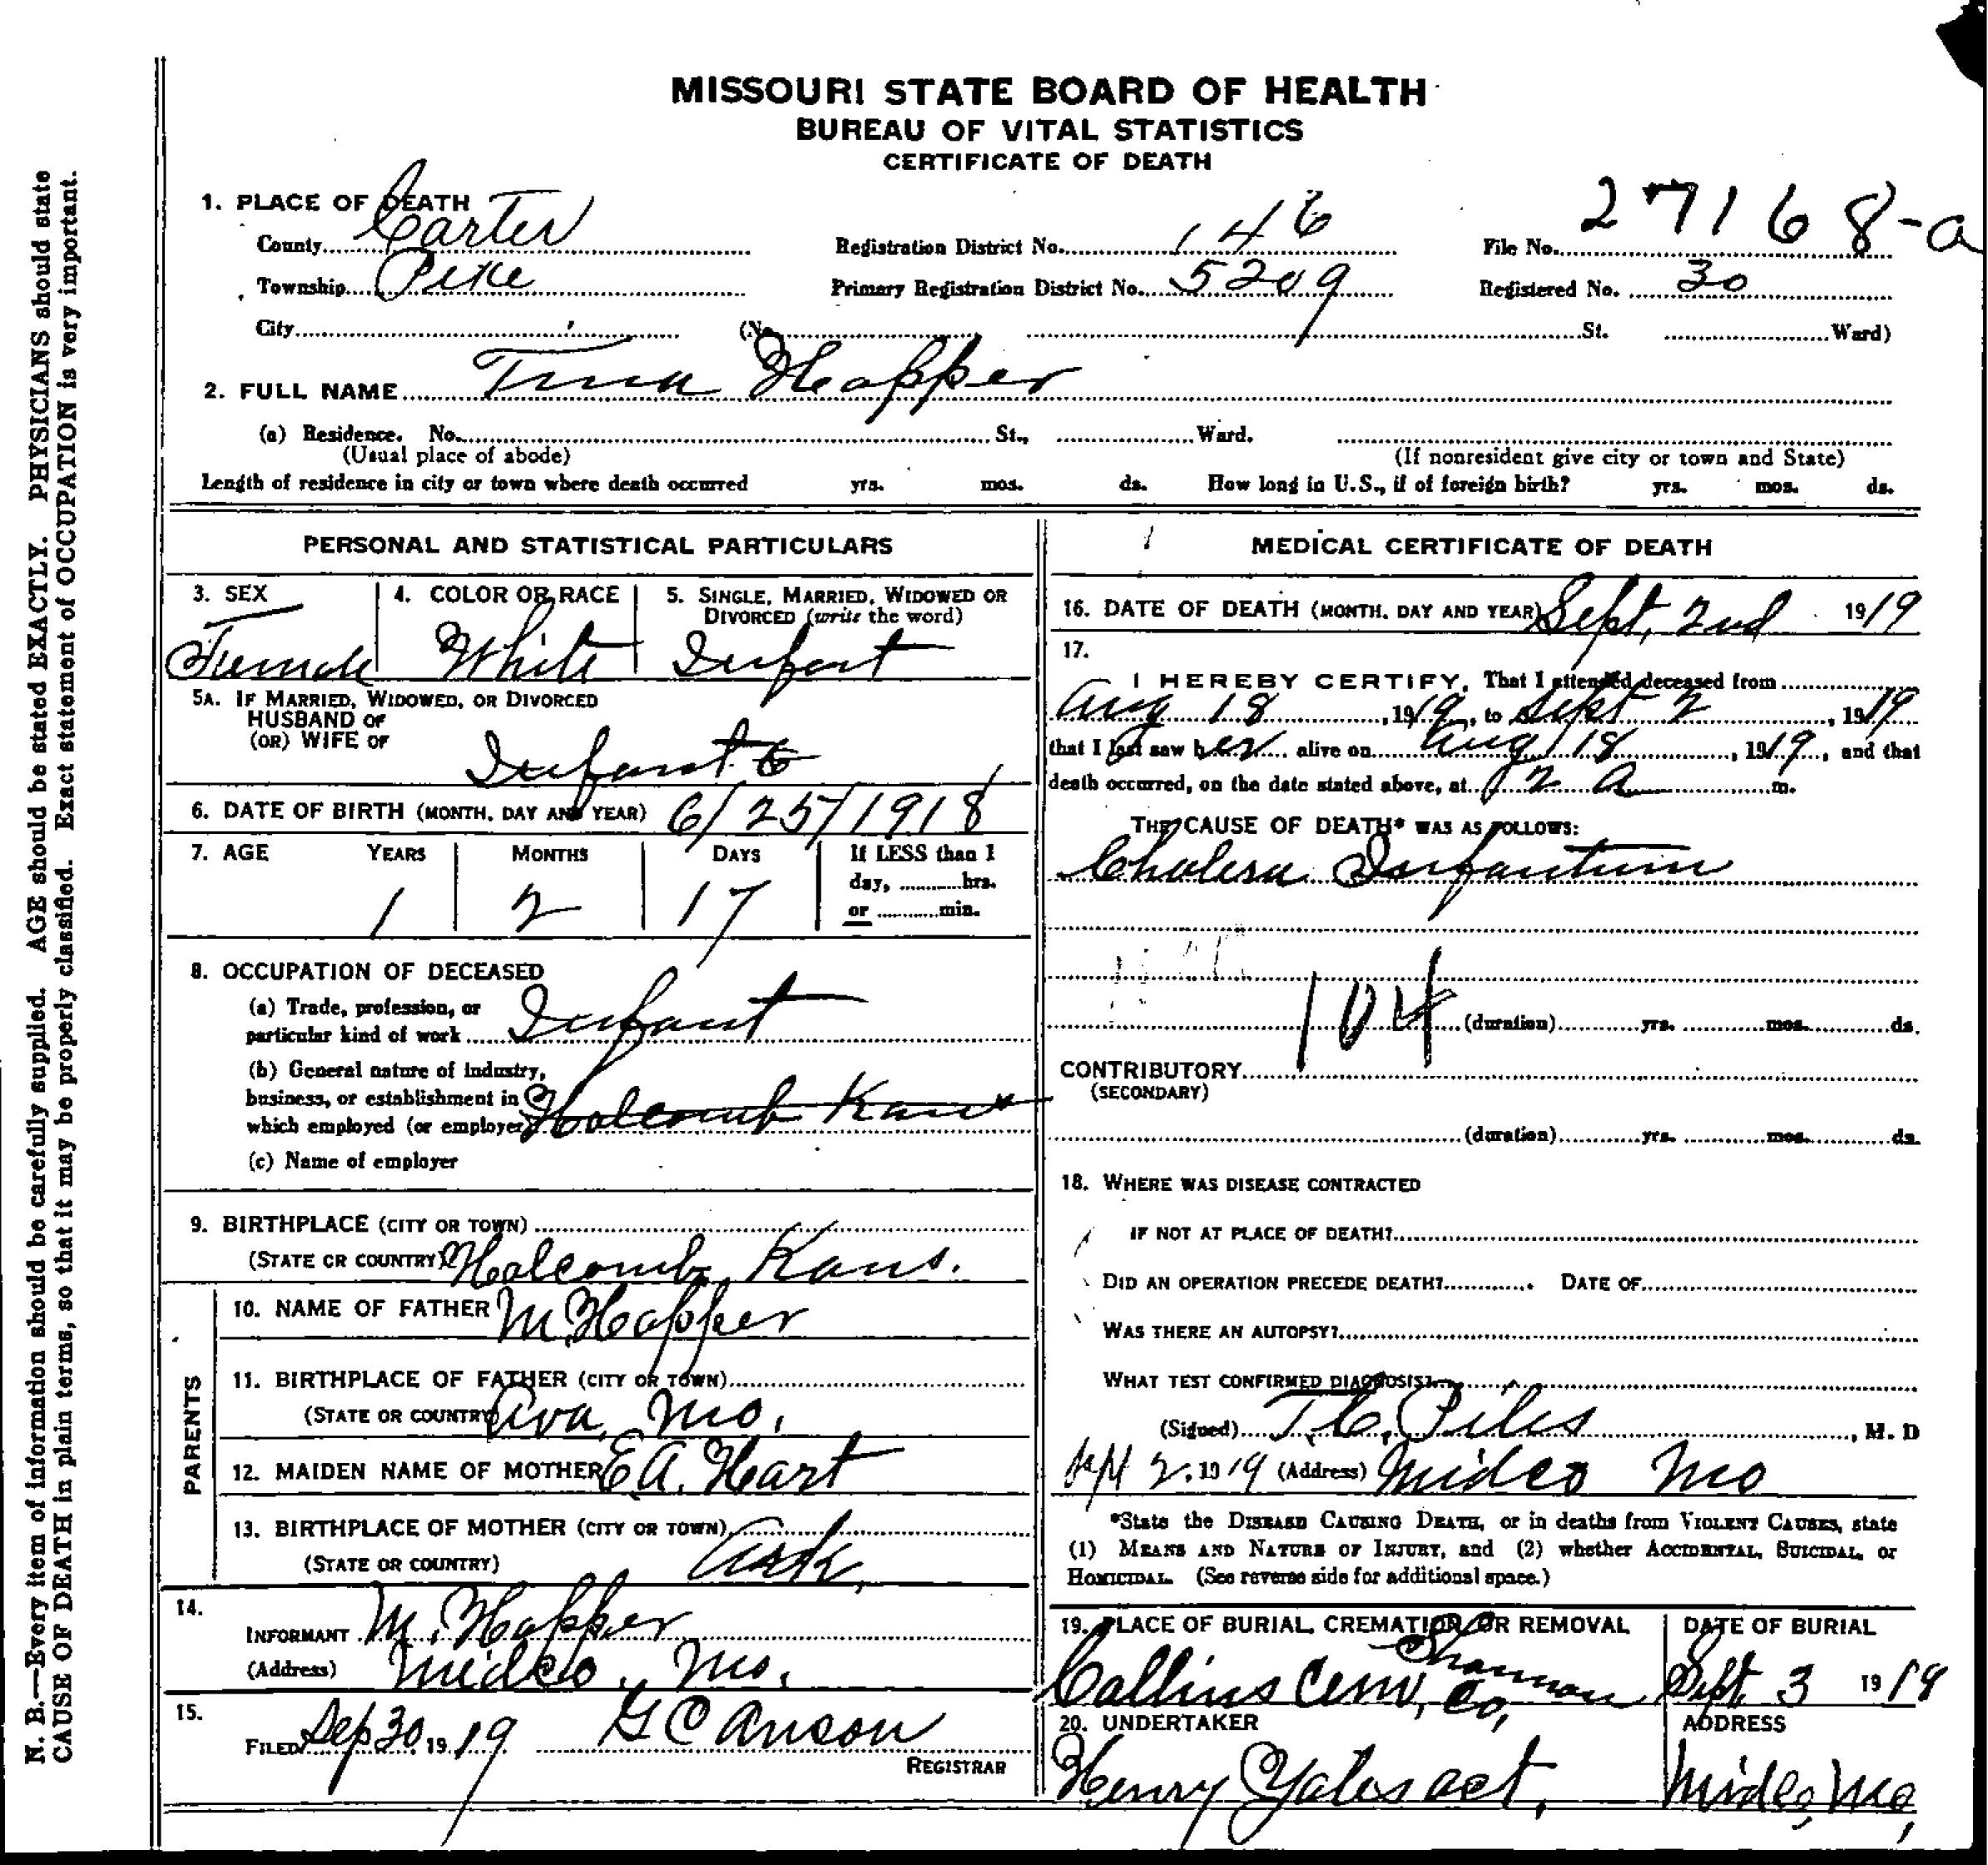 MISSOURI STATE BOARD OF HEALTH
BUREAU OF VITAL STATISTICS
CERTIFICATE OF DEATH
1. PLACE OF DEATH
County Carter Registration District No. 146 File No. 27168-a
Township Pike Primary Registration District No. 5209 Registered No. 30
City (No. St. Ward)
2. FULL NAME Happer
(a) Residence. No. St., Ward.
(Usual place of abode) (If nonresident give city or town and State)
Length of residence in city or town where death occurred yrs. mos. ds. How long in U.S., if of foreign birth? yrs. mos. ds.
PERSONAL AND STATISTICAL PARTICULARS
3. SEX 4. COLOR OR RACE 5. SINGLE, MARRIED, WIDOWED OR
DIVORCED (write the word)
Female White Infant
5A. IF MARRIED, WIDOWED, OR DIVORCED
HUSBAND OF
(OR) WIFE OF
Infant
6. DATE OF BIRTH (MONTH, DAY AND YEAR) 6/25/1918
7. AGE YEARS MONTHS DAYS If LESS than 1
day, hrs.
or min.
1 2 17
8. OCCUPATION OF DECEASED
(a) Trade, profession, or
particular kind of work Infant
(b) General nature of industry,
business, or establishment in
which employed (or employer) Holcomb Kans
(c) Name of employer
9. BIRTHPLACE (CITY OR TOWN)
(STATE OR COUNTRY) Holcomb, Kans.
PARENTS
10. NAME OF FATHER M. Happer
11. BIRTHPLACE OF FATHER (CITY OR TOWN)
(STATE OR COUNTRY) Ava, Mo.
12. MAIDEN NAME OF MOTHER E.A. Hart
13. BIRTHPLACE OF MOTHER (CITY OR TOWN)
(STATE OR COUNTRY) Ark,
14.
INFORMANT M. Happer
(Address) Midco, Mo.
15.
FILED Sep 30, 1919 G C Anson
REGISTRAR
MEDICAL CERTIFICATE OF DEATH
16. DATE OF DEATH (MONTH, DAY AND YEAR) Sept, 2nd 1919
17.
I HEREBY CERTIFY, That I attended deceased from
Aug 18, 1919, to Sept 2, 1919
that I last saw her alive on Aug 18, 1919, and that
death occurred, on the date stated above, at 2 a m.
THE CAUSE OF DEATH* WAS AS FOLLOWS:
Cholera Infantum
104 (duration) yrs. mos. ds.
CONTRIBUTORY
(SECONDARY)
(duration) yrs. mos. ds.
18. WHERE WAS DISEASE CONTRACTED
IF NOT AT PLACE OF DEATH?
DID AN OPERATION PRECEDE DEATH? DATE OF
WAS THERE AN AUTOPSY?
WHAT TEST CONFIRMED DIAGNOSIS?
(Signed) T.C. Piles, M. D
Sept 2, 1919 (Address) Midco Mo
*State the DISEASE CAUSING DEATH, or in deaths from VIOLENT CAUSES, state
(1) MEANS AND NATURE OF INJURY, and (2) whether ACCIDENTAL, SUICIDAL, or
HOMICIDAL. (See reverse side for additional space.)
19. PLACE OF BURIAL, CREMATION, OR REMOVAL DATE OF BURIAL
Collins Cem, Shannon Co, Sept. 3 1919
20. UNDERTAKER ADDRESS
Henry Yates act, Midco, Mo,
N. B.—Every item of information should be carefully supplied. AGE should be stated EXACTLY. PHYSICIANS should state
CAUSE OF DEATH in plain terms, so that it may be properly classified. Exact statement of OCCUPATION is very important.